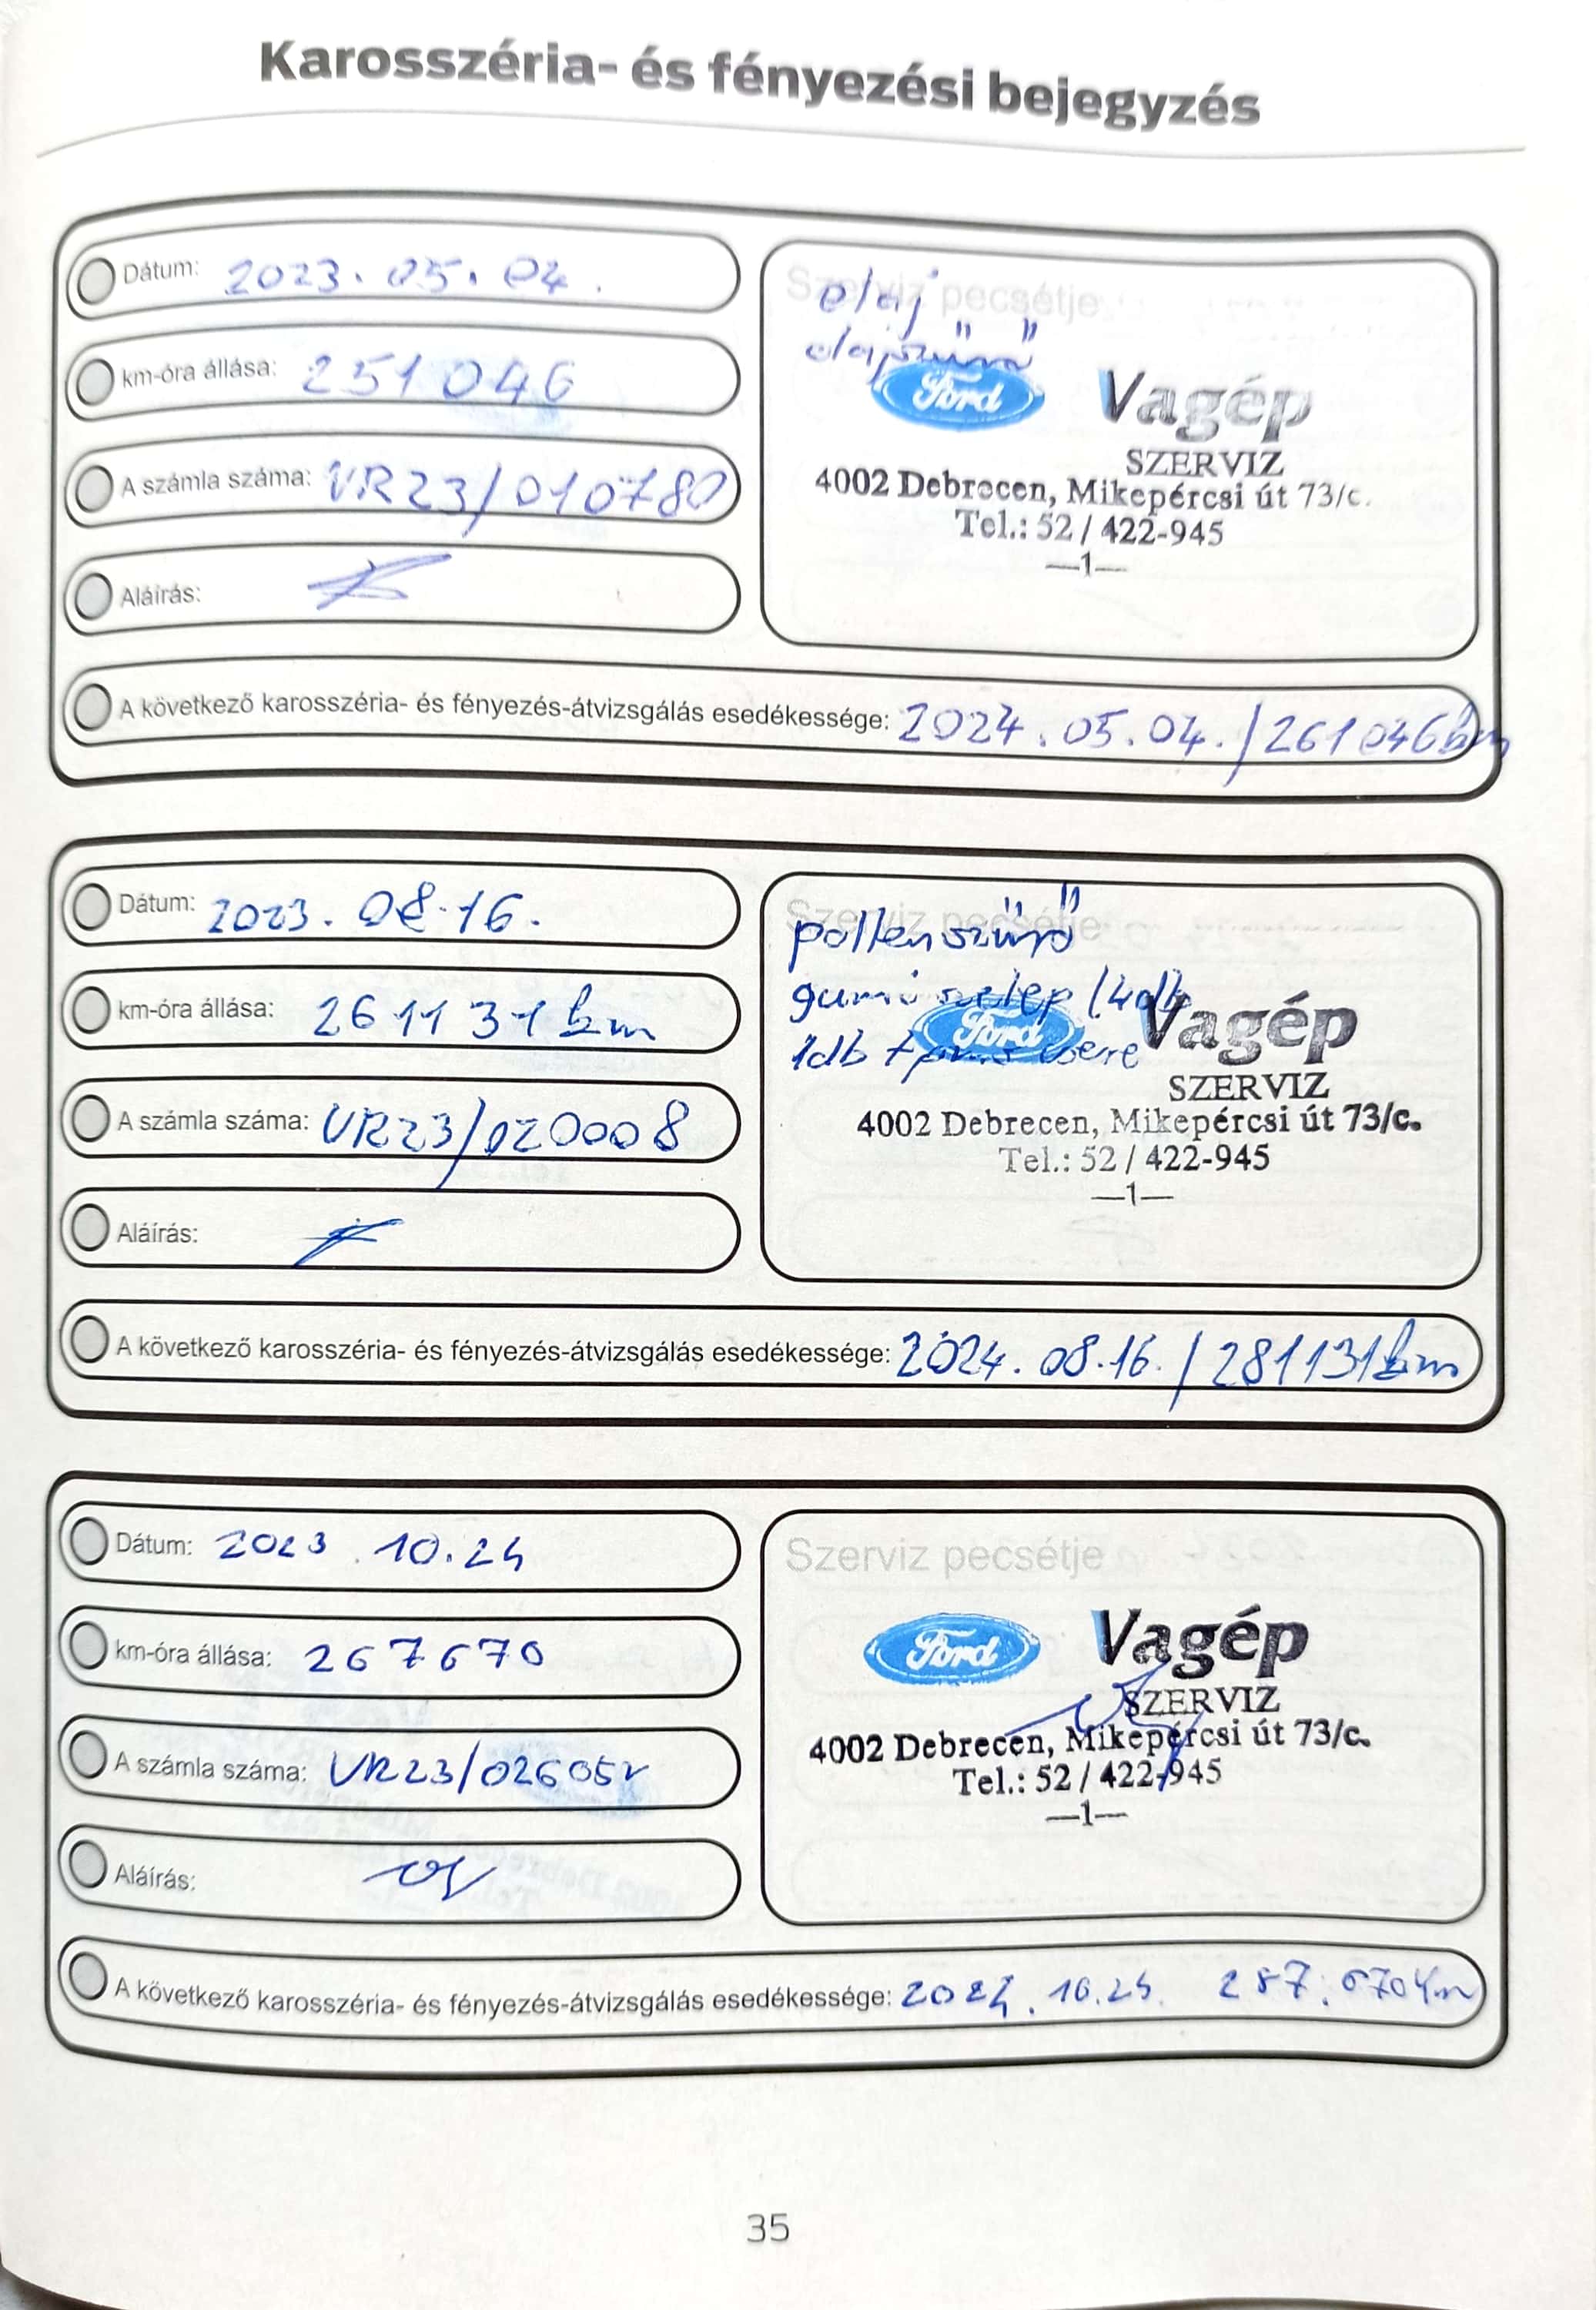 Karosszéria- és fényezési bejegyzés
Dátum: 2023. 05. 04.
km-óra állása: 251046
A számla száma: VR23/010780
Aláírás:
Szerviz pecsétje
olaj
olajszűrő
Ford Vagép
SZERVIZ
4002 Debrecen, Mikepércsi út 73/c.
Tel.: 52 / 422-945
—1—
A következő karosszéria- és fényezés-átvizsgálás esedékessége: 2024. 05. 04. / 261046 km
Dátum: 2023. 08. 16.
km-óra állása: 261131 km
A számla száma: VR23/020008
Aláírás:
Szerviz pecsétje
pollenszűrő
gumi szelep (4db
1db tpms csere
Ford Vagép
SZERVIZ
4002 Debrecen, Mikepércsi út 73/c.
Tel.: 52 / 422-945
—1—
A következő karosszéria- és fényezés-átvizsgálás esedékessége: 2024. 08. 16. / 281131 km
Dátum: 2023. 10. 24
km-óra állása: 267670
A számla száma: VR23/026052
Aláírás:
Szerviz pecsétje
Ford Vagép
SZERVIZ
4002 Debrecen, Mikepércsi út 73/c.
Tel.: 52 / 422-945
—1—
A következő karosszéria- és fényezés-átvizsgálás esedékessége: 2024. 10. 24. 287.670 km
35